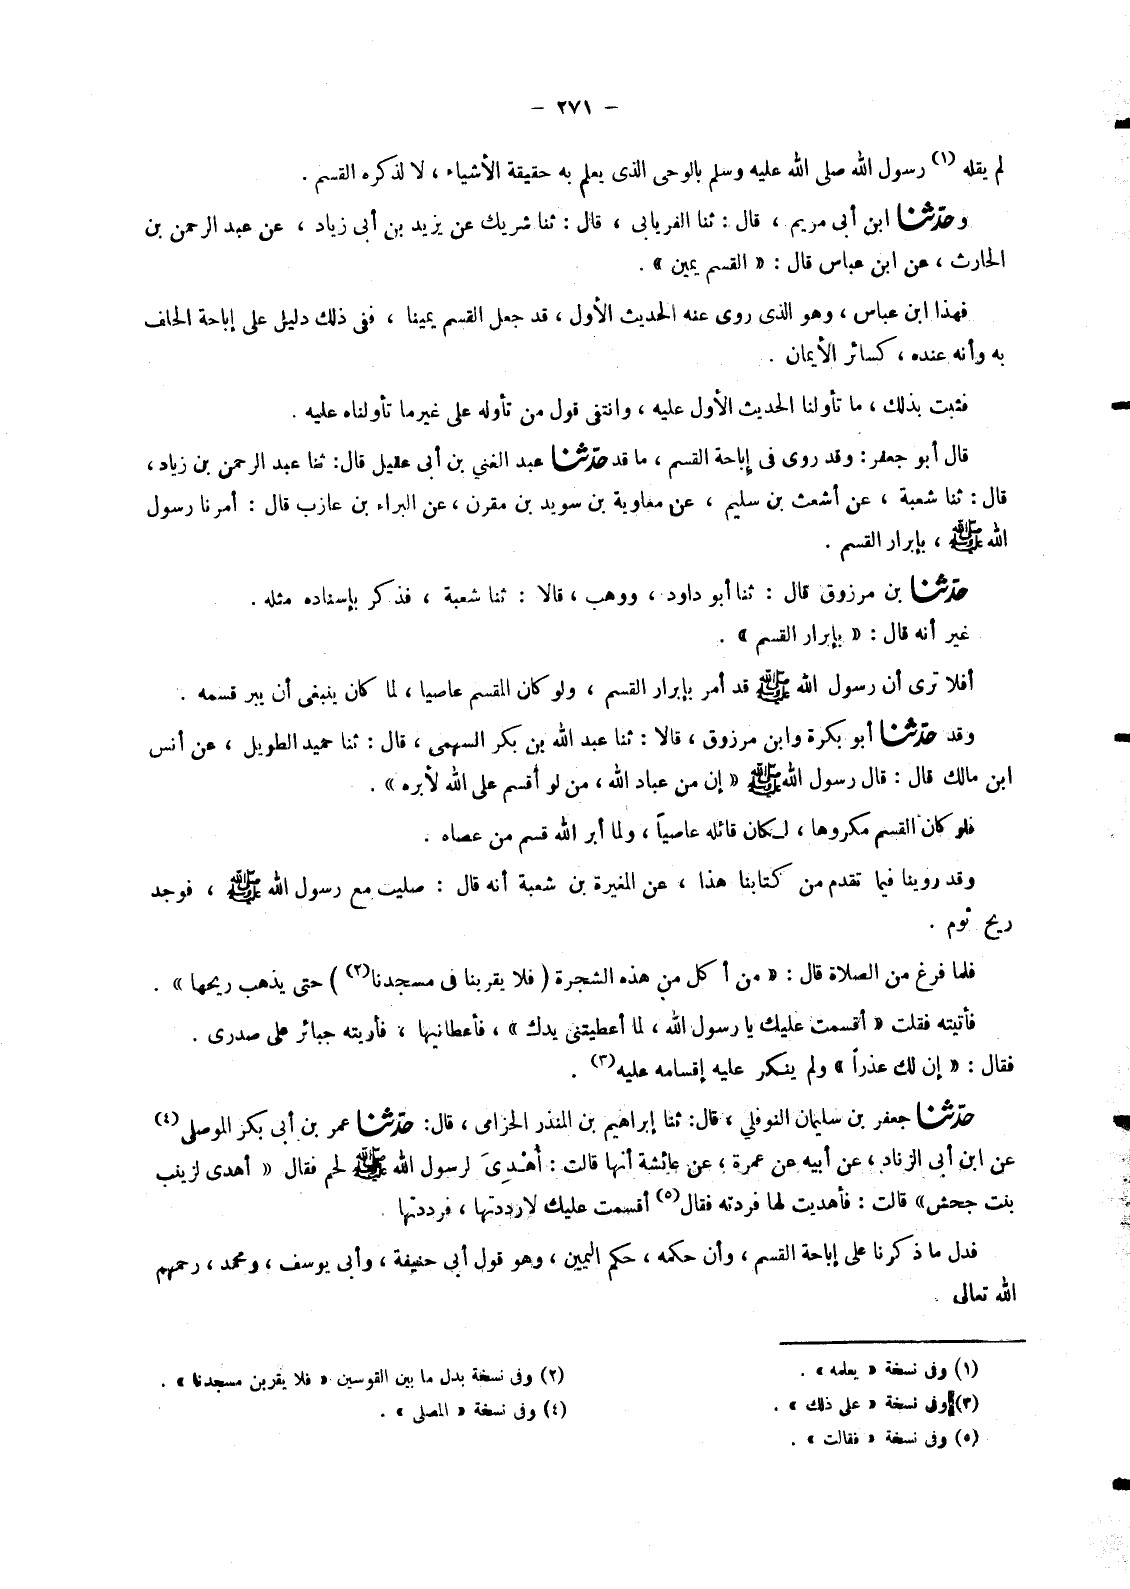 - ٢٧١ -
لم يقله (١) رسول الله صلى الله عليه وسلم بالوحى الذى يعلم به حقيقة الأشياء ، لا لذكره القسم .
وحدّثنا ابن أبى مريم ، قال : ثنا الفريابى ، قال : ثنا شريك عن يزيد بن أبى زياد ، عن عبد الرحمن بن
الحارث ، عن ابن عباس قال : « القسم يمين » .
فهذا ابن عباس ، وهو الذى روى عنه الحديث الأول ، قد جعل القسم يمينا ، ففى ذلك دليل على إباحة الحلف
به وأنه عنده ، كسائر الأيمان .
فثبت بذلك ، ما تأولنا الحديث الأول عليه ، وانتفى قول من تأوله على غير ما تأولناه عليه .
قال أبو جعفر : وقد روى فى إباحة القسم ، ما قد حدّثنا عبد الغني بن أبى عقيل قال : ثنا عبد الرحمن بن زياد ،
قال : ثنا شعبة ، عن أشعث بن سليم ، عن معاوية بن سويد بن مقرن ، عن البراء بن عازب قال : أمرنا رسول
الله ﷺ ، بإبرار القسم .
حدّثنا بن مرزوق قال : ثنا أبو داود ، ووهب ، قالا : ثنا شعبة ، فذكر بإسناده مثله .
غير أنه قال : « بإبرار القسم » .
أفلا ترى أن رسول الله ﷺ قد أمر بإبرار القسم ، ولو كان المقسم عاصيا ، لما كان ينبغى أن يبر قسمه .
وقد حدّثنا أبو بكرة وابن مرزوق ، قالا : ثنا عبد الله بن بكر السهمى ، قال : ثنا حميد الطويل ، عن أنس
ابن مالك قال : قال رسول الله ﷺ « إن من عباد الله ، من لو أقسم على الله لأبره » .
فلو كان القسم مكروها ، لكان قائله عاصياً ، ولما أبر الله قسم من عصاه .
وقد روينا فيما تقدم من كتابنا هذا ، عن المغيرة بن شعبة أنه قال : صليت مع رسول الله ﷺ ، فوجد
ريح ثوم .
فلما فرغ من الصلاة قال : « من أكل من هذه الشجرة ( فلا يقربنا فى مسجدنا(٢) ) حتى يذهب ريحها » .
فأتيته فقلت « أقسمت عليك يا رسول الله ، لما أعطيتنى يدك » ، فأعطانيها ، فأريته جبائر على صدرى .
فقال : « إن لك عذراً » ولم ينكر عليه إقسامه عليه(٣) .
حدّثنا جعفر بن سليمان النوفلي ، قال : ثنا إبراهيم بن المنذر الحزامى ، قال : حدّثنا عمر بن أبى بكر الموصلى(٤)
عن ابن أبى الزناد ، عن أبيه عن عمرة ، عن عائشة أنها قالت : أُهْدِىَ لرسول الله ﷺ لحم فقال « أهدى لزينب
بنت جحش» قالت : فأهديت لها فردته فقال(٥) أقسمت عليك لارددتها ، فرددتها .
فدل ما ذكرنا على إباحة القسم ، وأن حكمه ، حكم اليمين ، وهو قول أبي حنيفة ، وأبى يوسف ، ومحمد ، رحمهم
الله تعالى .
(١) وفى نسخة « يعلمه » .
(٢) وفى نسخة بدل ما بين القوسين « فلا يقربن مسجدنا » .
(٣) وفى نسخة « على ذلك » .
(٤) وفى نسخة « المصلى » .
(٥) وفى نسخة « فقالت » .